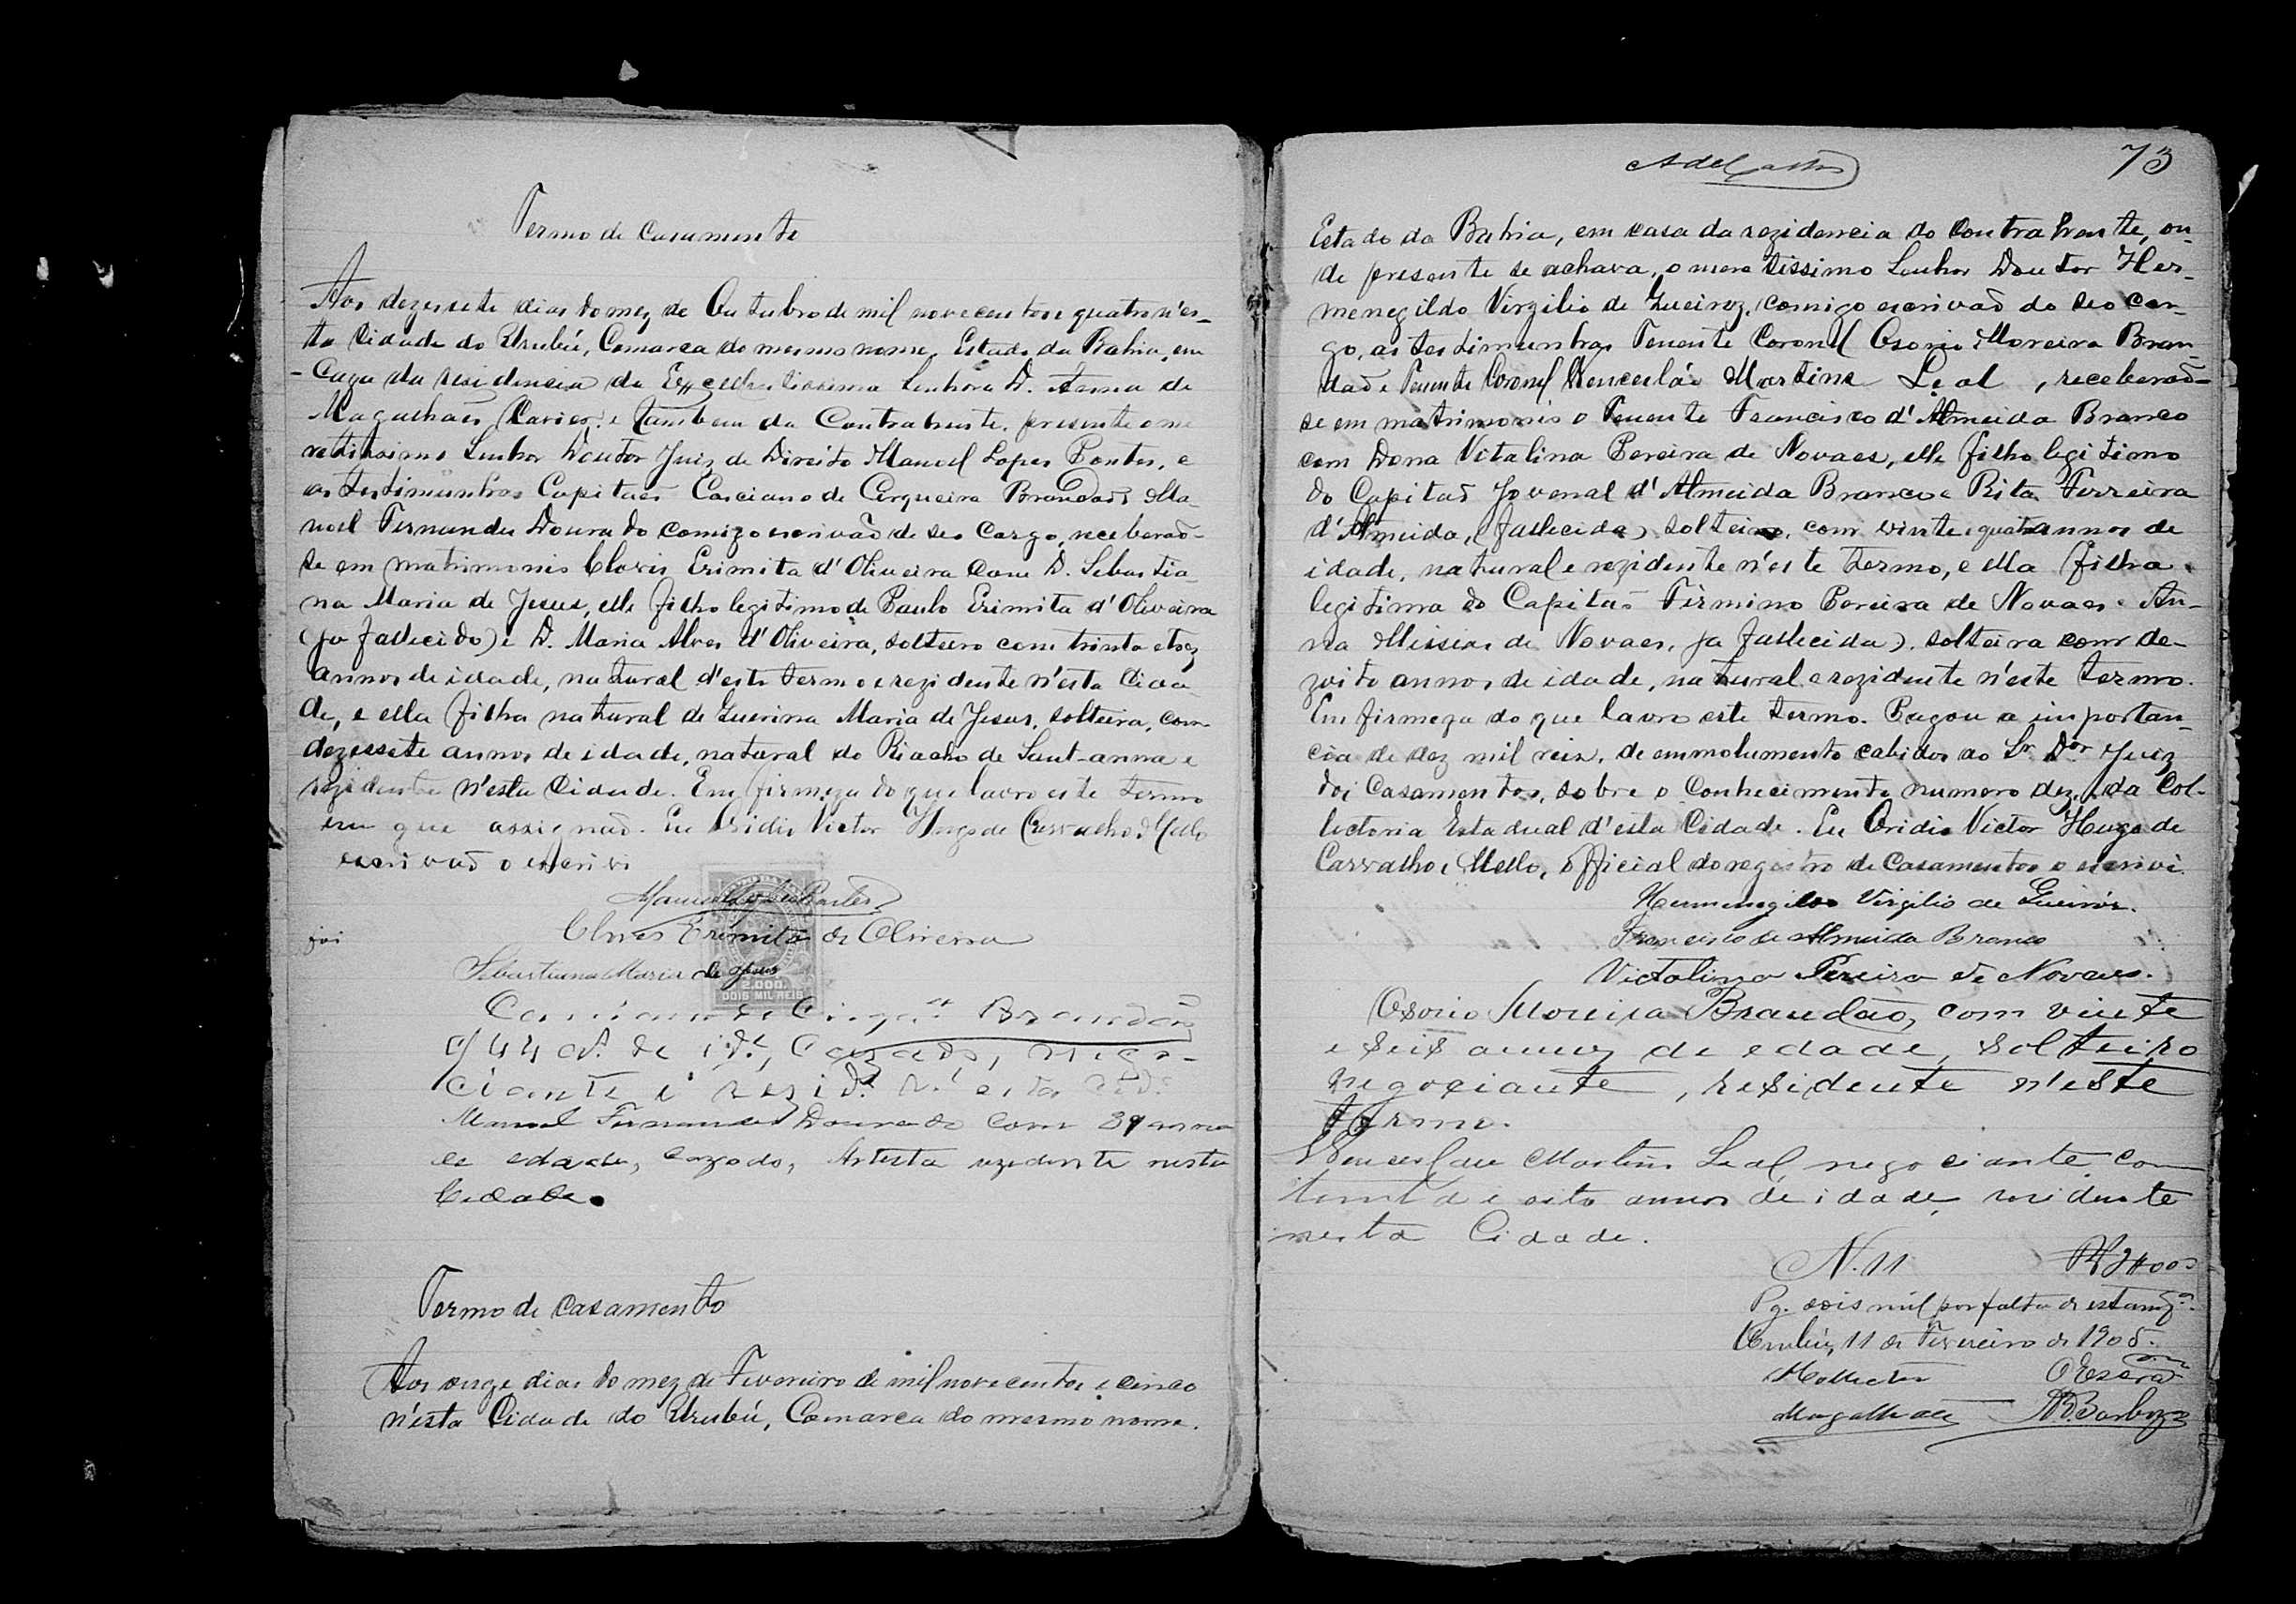 Termo de Casamento
Aos dezersete dias do mez de Outubro de mil novecentos e quatro n'es-
ta Cidade do Urubú, Comarca do mesmo nome, Estado da Bahia, em
Caza da residencia da Excellentissima Senhora D. Anna de
Magalhães e tambem da Contrahente, presente o me
retissimo Senhor Doutor Juiz de Direito Manoel Lopes Pontes, e
as testimunhas Capitaõ Casciano de Cerqueira Brandaõ e Ma-
noel Fernandes Dourado comigo escrivaõ de seo Cargo, receberaõ-
se em matrimonio Clovis Erimita d'Oliveira com D. Sebastia-
na Maria de Jesus, elle filho legitimo de Paulo Erimita d'Oliveira
(ja fallecido) e D. Maria Alves d'Oliveira, solteiro com trinta e trez
annos de idade, natural d'este termo e rezidente n'esta Cida-
de, e ella filha natural de Zuerina Maria de Jesus, solteira, com
dezessete annos de idade, natural do Riacho de Sant-anna e
rezidente n'esta Cidade. Em firmeza do que lavro este termo
em que assignaõ. Eu Ovidio Victor Hugo de Carvalho e Mello
escrivaõ o escrivi
Manoel Lopes Pontes
Clovis Erimita de Oliveira
Sebastiana Maria de Jesus
2.000
DOIS MIL REIS
Casciano de Cirqª Brandão
c/ 44 ad. de id.e, Cazado, nego-
ciante e rezid.e n'esta
Manoel Fernandes Dourado com 39 annos
de edade, cazado, Artista rezidente nesta
Cidade.
Termo de Casamento
Aos onze dias do mez de Fevereiro de mil novecentos e cinco
n'esta Cidade do Urubú, Comarca do mesmo nome.
73
Estado da Bahia, em casa da rezidencia do Contrahente, on-
de presente se achava, o meretissimo Senhor Doutor Her-
menegildo Virgilio de Queiroz, comigo escrivaõ do seo car-
go, as testimunhas Tenente Coronel Osorio Moreira Bran-
daõ e Tenente Coronel Wenceslâo Martins Leal, receberaõ-
se em matrimonio o Tenente Francisco d'Almeida Branco
com Dona Vitalina Pereira de Novaes, elle filho legitimo
do Capitaõ Jovenal d'Almeida Branco e Rita Ferreira
d'Almeida, (fallecida), solteiro, com vinte e quatro annos de
idade, natural e rezidente n'este termo, e ella filha
legitima do Capitaõ Firmino Pereira de Novaes e An-
na Missias de Novaes, ja fallecida), solteira com de-
zoito annos de idade, natural e rezidente n'este termo.
Em firmeza do que lavro este termo. Pagou a importan-
cia de dez mil reis, de emmolumento cabidos ao Sr. Dor Juiz
dos Casamentos, sobre o Conhecimento numero dez, da Col-
lectoria Estadual d'esta Cidade. Eu Ovidio Victor Hugo de
Carvalho e Mello, Official do registro de Casamentos o escrivi.
Hermenegildo Virgilio de Queiroz.
Francisco de Almeida Branco
Victalina Pereira de Novaes.
Osorio Moreira Brandão, com vinte
e seis annos de edade, solteiro
negociante, residente n'este
termo.
Wenceslau Martins Leal negociante com
trinta e oito annos de idade, residente
nesta Cidade.
N. 11 2#000
Pg. dois mil por falta de estampª.
Urubú, 11 de Fevereiro de 1905.
O Collector O Escram
Magalhães Barboza